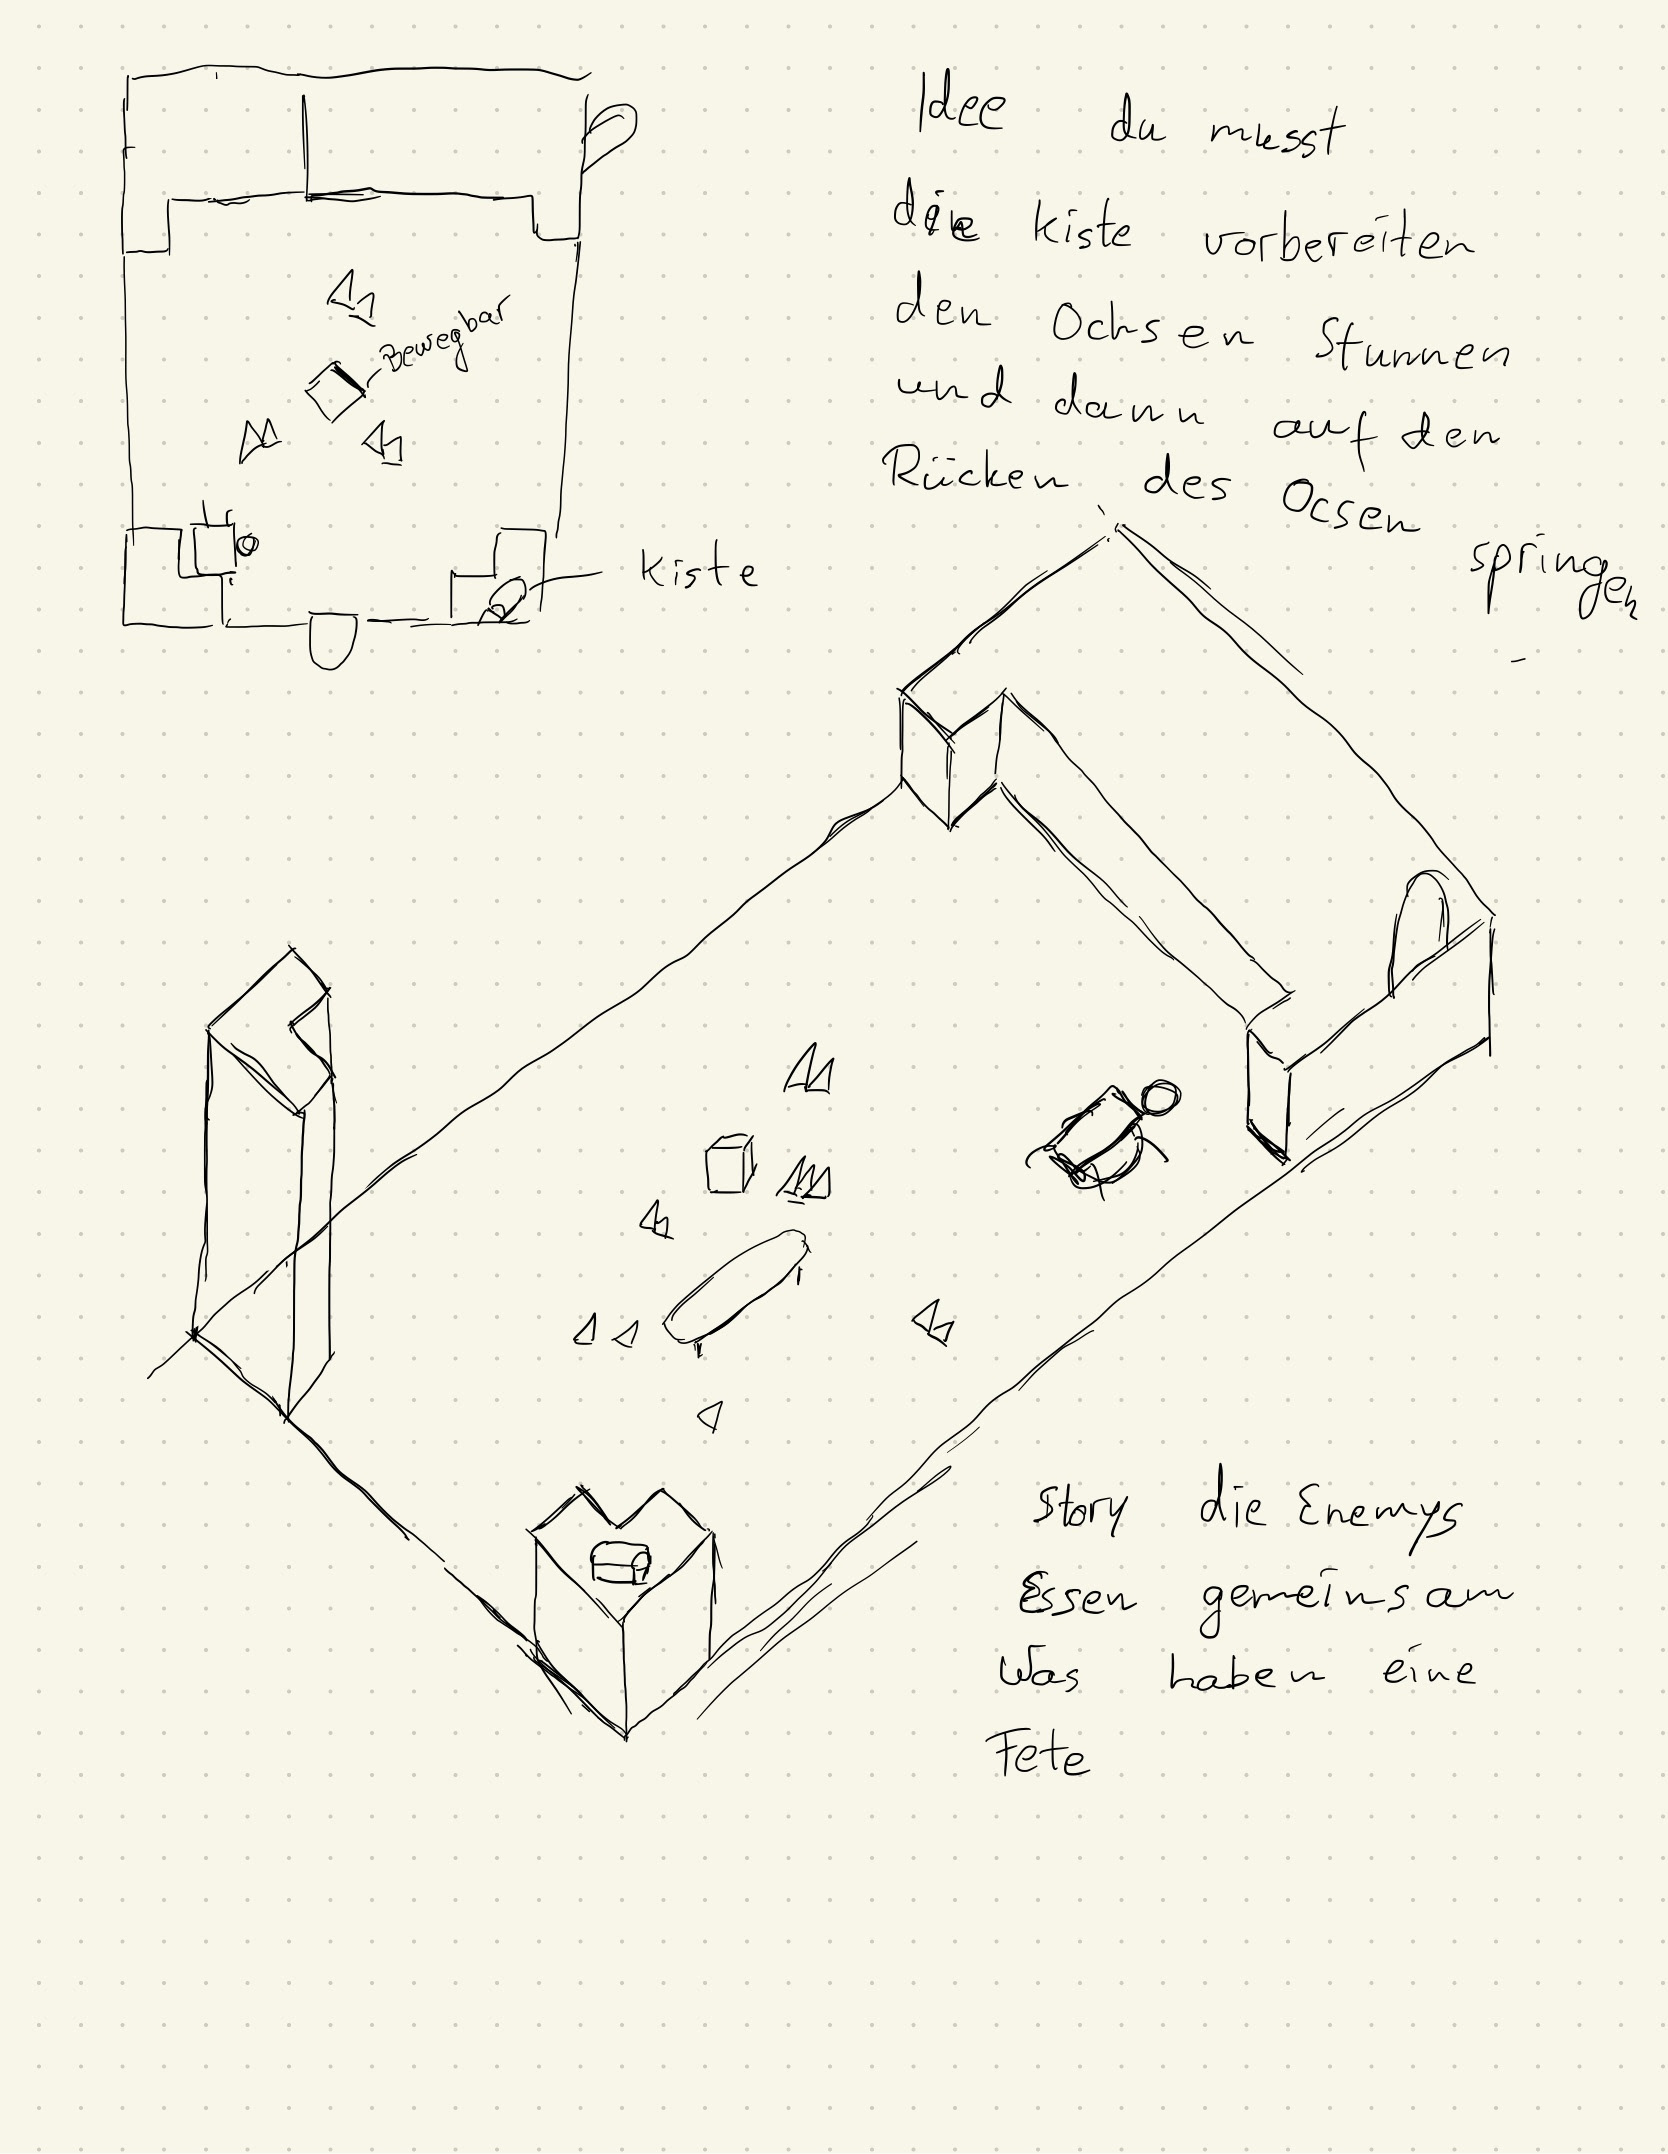 Idee du musst
die kiste vorbereiten
den Ochsen Stunnen
und dann auf den
Rücken des Ocsen
springen
Bewegbar
kiste
Story die Enemys
Essen gemeinsam
Was haben eine
Fete